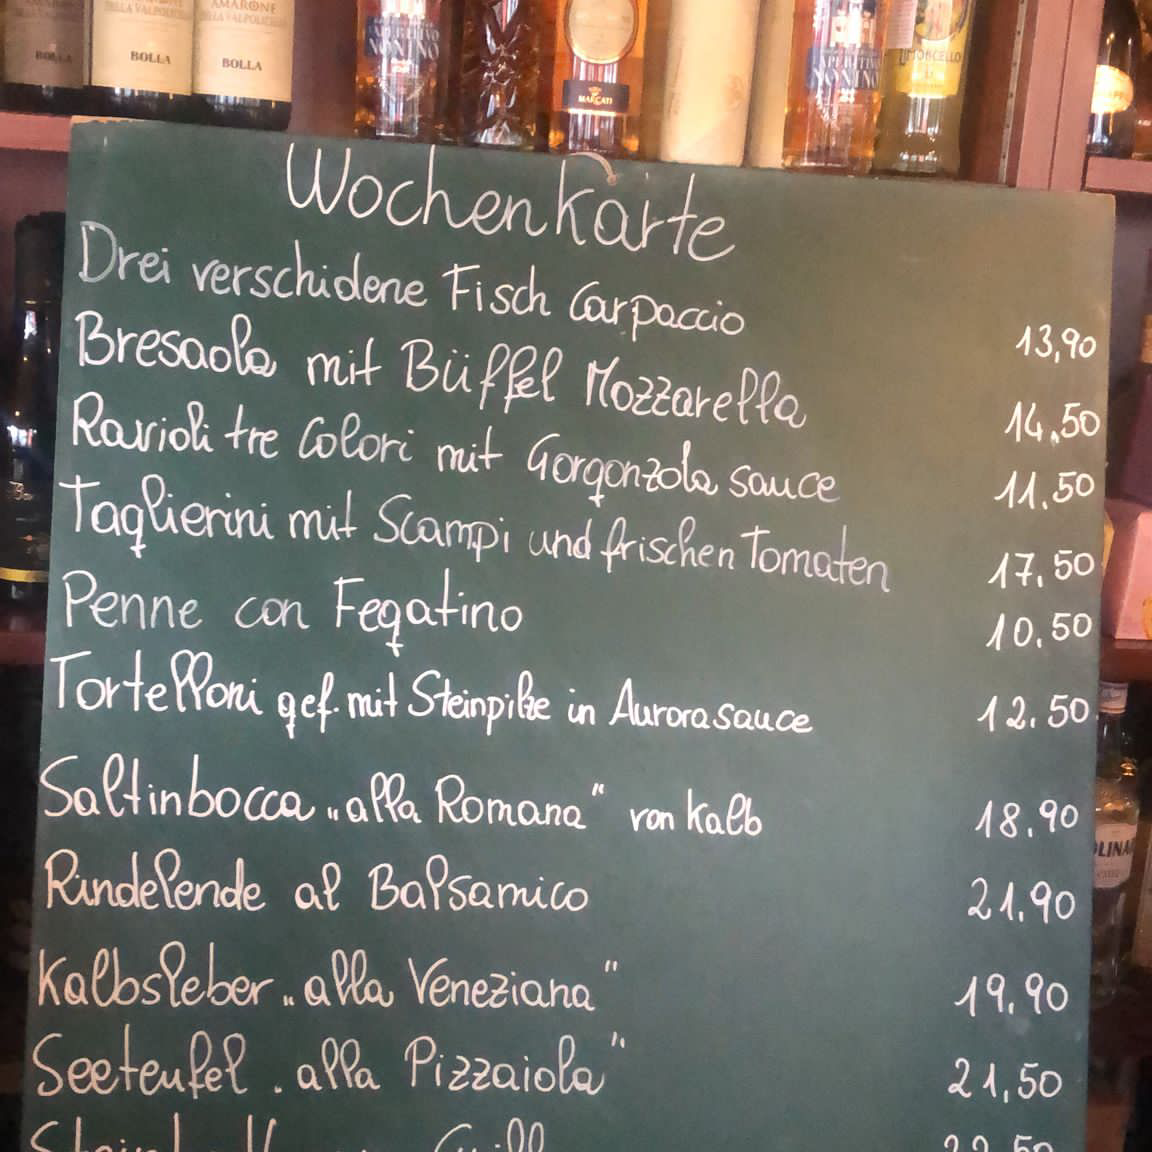 AMARONE
DELLA VALPOLICELLA
BOLLA
BOLLA
BOLLA
APERITIVO
NONINO
MARCATI
APERITIVO
NONINO
LIMONCELLO
Wochenkarte
Drei verschidene Fisch Carpaccio 13,90
Bresaola mit Büffel Mozzarella 14,50
Ravioli tre Colori mit Gorgonzola sauce 11.50
Taglierini mit Scampi und frischen Tomaten 17.50
Penne con Fegatino 10.50
Tortelloni gef. mit Steinpilze in Aurorasauce 12.50
Saltinbocca „alla Romana“ von Kalb 18.90
Rindelende al Balsamico 21.90
Kalbsleber „alla Veneziana" 19.90
Seeteufel . alla Pizzaiola" 21,50
Grill 22,50